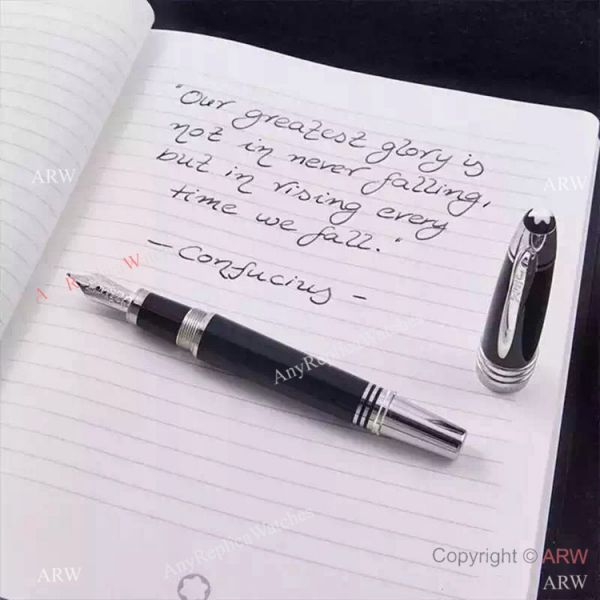 "Our greatest glory is
not in never falling,
but in rising every
time we fall."
- Confucius -
ARW
ARW
AnyReplicaWatches
AnyReplicaWatches
AnyReplicaWatches
Copyright © ARW
ARW
ARW